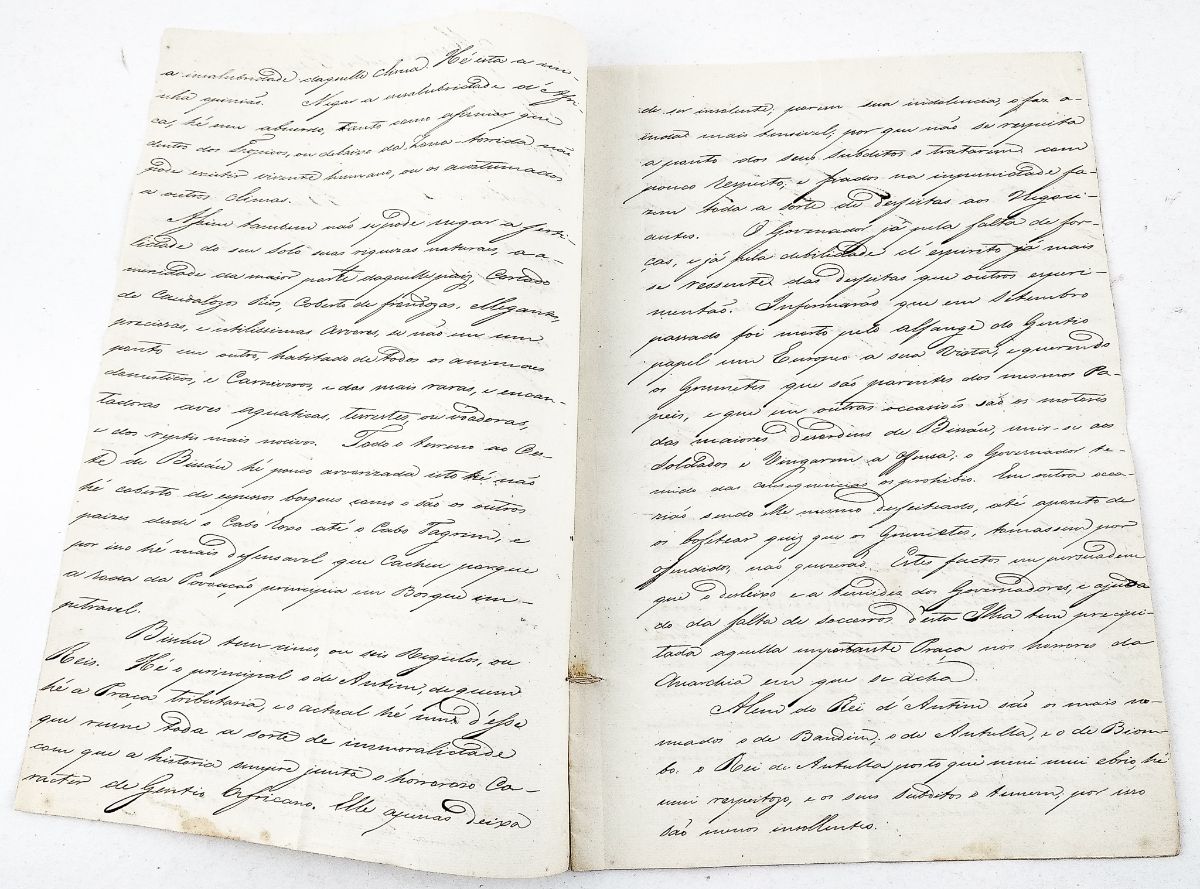 a insalubridade daquelle clima Hé esta a mi-
nha opinião. Negar a insalubridade d'Afri-
ca, hé um absurdo, tanto como afirmar que
dentro dos Tropicos, ou debaixo da Zona Torrida não
pode existir vivente humano, ou os acostumados
a outros climas.
Assim tambem não se pode negar a ferti-
lidade do seu solo suas riquezas naturais, a a-
menidade da maior parte daquelle paiz, Cortado
de Caudalozos Rios, Coberto de frondozas. Ellegantes,
preciozas, e utilissimas arvores, se não em um
ponto em outro, habitado de todos os animaes
domesticos, e Carnivoros, e das mais raras, e encan-
tadoras aves aquaticas, terrestes, ou voadoras,
e dos reptis mais nocivos. Todo o terreno ao Oes-
te de Bissáu hé pouco arvorizado isto hé não
hé coberto de espessos bosques como o são os outros
paizes desde o Cabo Roxo até o Cabo Tagrem, e
por isso hé mais defensavel que Cacheu porque
a roda da Povoação principia um Bosque im-
pitravel.
Bissáu tem cinco, ou seis Regulos, ou
Reis. Hé o principal o de Antim, de quem
hé a Praça tributaria, e o actual hé um d'esse
que reune toda a sorte de immoralidade
com que a historia sempre junta o horroroso Ca-
racter de Gentio Africano. Elle apenas deixa
de ser insolente, porem sua indolencia, o faz a-
inda mais sensivel; por que não se respeita
a ponto dos seus subditos o tratarem com
pouco respeito, e fiados na impunidade fa-
zem toda a sorte de desfeitas aos Negoci-
antes. O Governador já pela falta de for-
ças, e já pela debilidade d'espirito já mais
se ressente das desfeitas que outros experi-
mentão. Informarão que em Setembro
passado foi morto pelo alfange do Gentio
papel um Europeo a sua Vista, e querendo
os Grumetes que são parentes dos mesmos Pa-
peis, e que em outras occasiões são os motores
das maiores desordens de Bissáu, unir-se aos
Soldados e Vingarem a offensa, o Governador te-
mido das consequencias os prohibio. Em outra occa-
zião sendo elle mesmo desfeitado, até aponto de
os bofetear quiz que os Grumetes, tomassem por
offendidos, não quizerão. Estes factos me persuadem
que o desleixo e a timidez dos Governadores, e ajuda
do da falta de soccorros d'esta Ilha tem precipi-
tada aquella importante Praça nos horrores da
Anarchia em que se áchá
Alem do Rei d'Antim são os mais no-
meados o de Bandim, o de Antulla, e o de Biom-
bo. o Rei de Antulla posto qui mui mui ebrio, hé
mui respeitozo, e os seus subditos o temem, por isso
são menos insollentes.